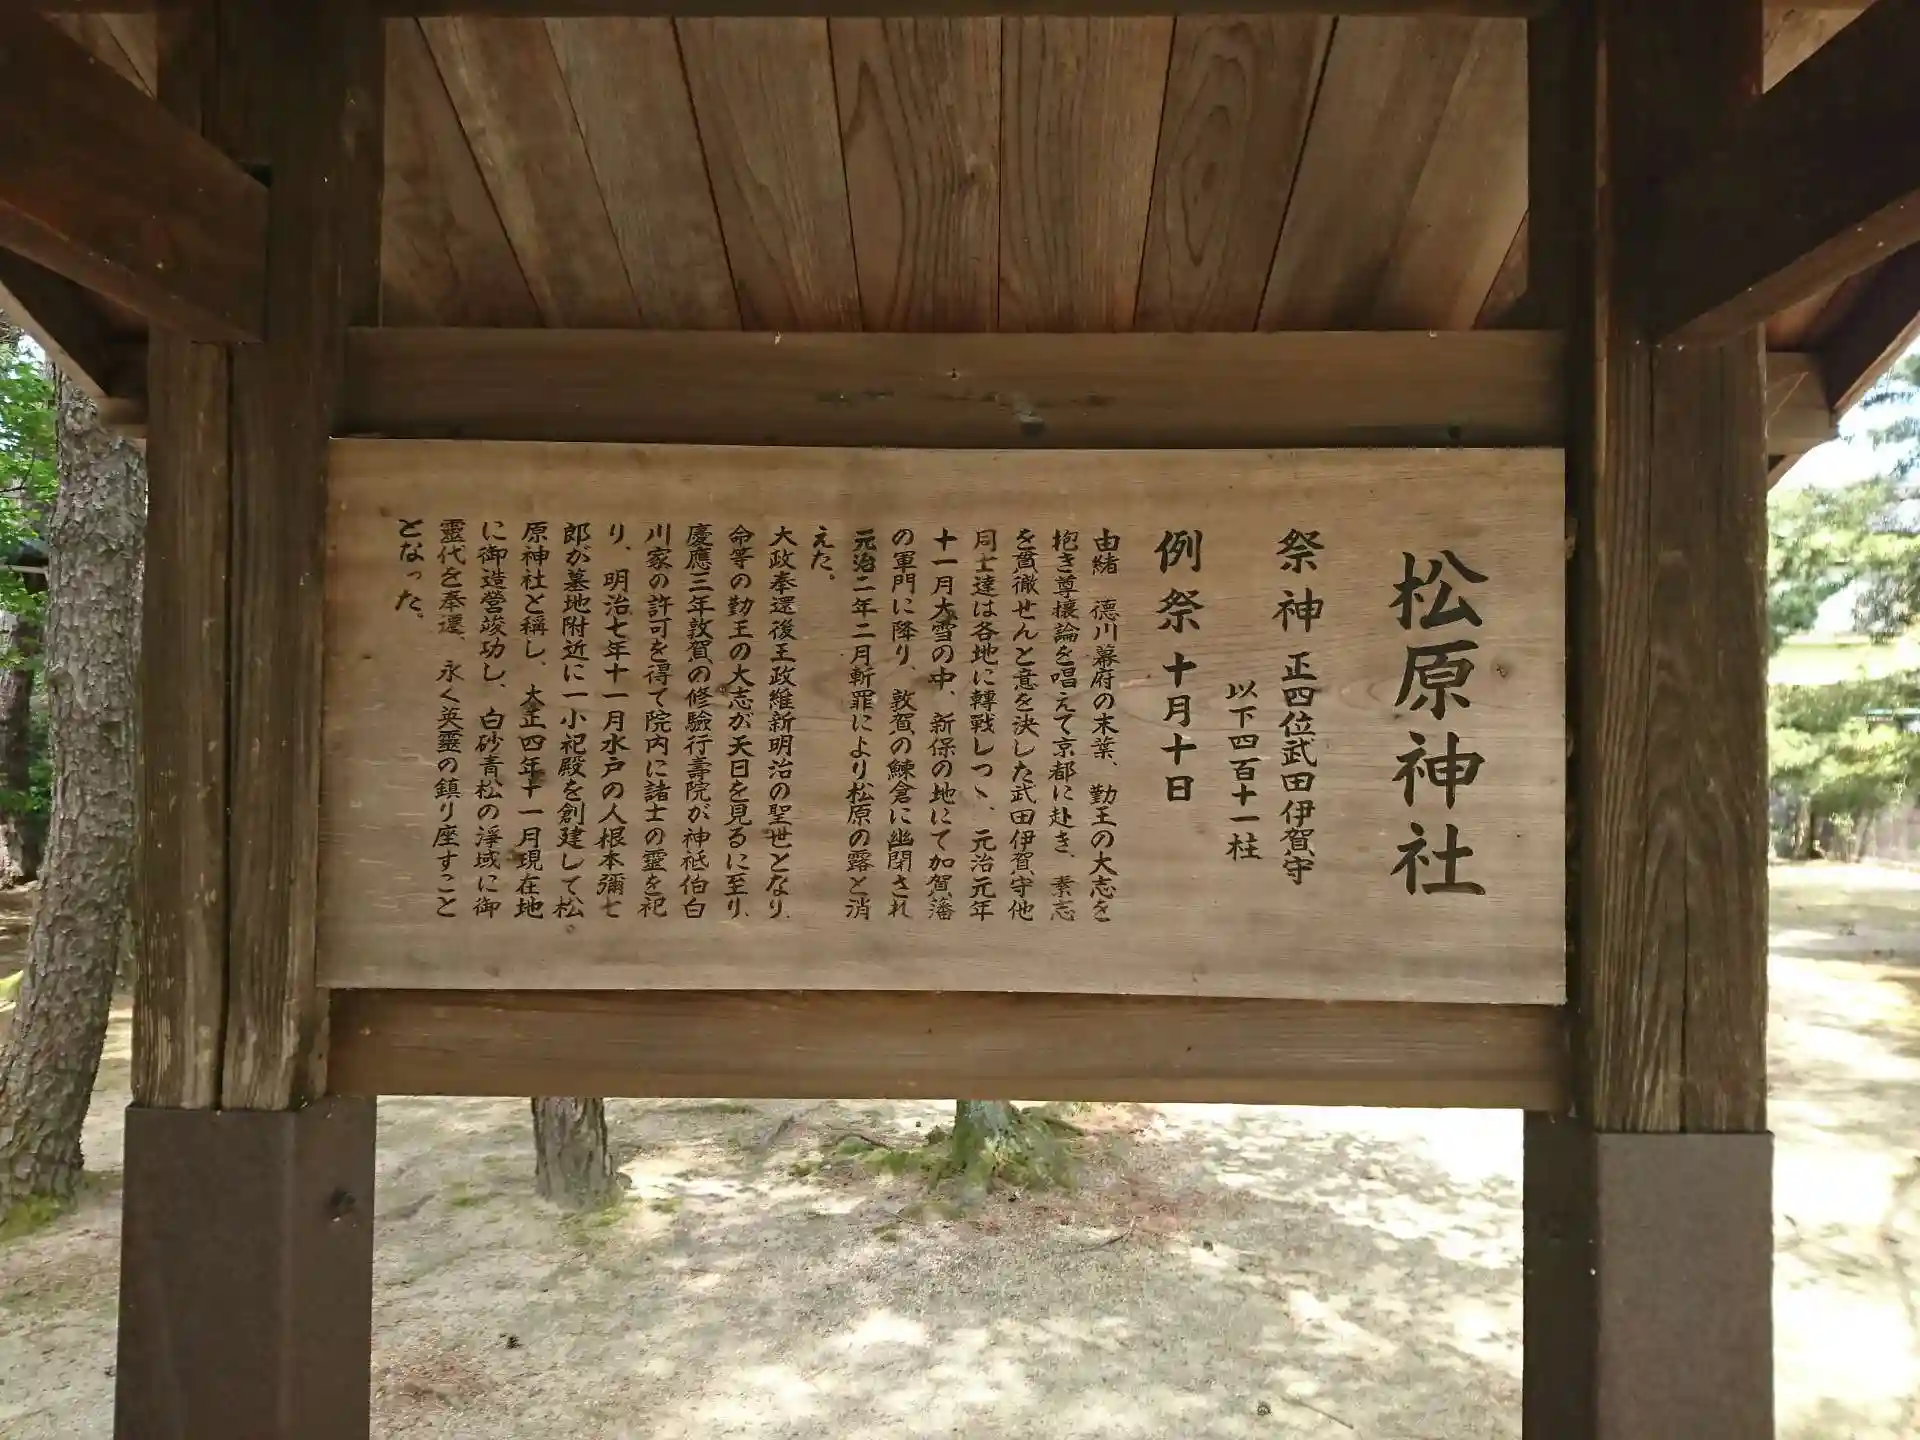 松原神社
祭神 正四位武田伊賀守
以下四百十一柱
例祭 十月十日
由緒 德川幕府の末葉、勤王の大志を
抱き尊攘論を唱えて京都に赴き、素志
を貫徹せんと意を決した武田伊賀守他
同士達は各地に轉戦しつゝ、元治元年
十一月大雪の中、新保の地にて加賀藩
の軍門に降り、敦賀の鰊倉に幽閉され
元治二年二月斬罪により松原の露と消
えた。
大政奉還後王政維新明治の聖世となり、
命等の勤王の大志が天日を見るに至り、
慶應三年敦賀の修驗行壽院が神祇伯白
川家の許可を得て院内に諸士の靈を祀
り、明治七年十一月水戸の人根本彌七
郎が墓地附近に一小祀殿を創建して松。
原神社と稱し、大正四年十一月現在地
に御造營竣功し、白砂青松の淨域に御
靈代を奉遷、永く英靈の鎮り座すこと
となった。